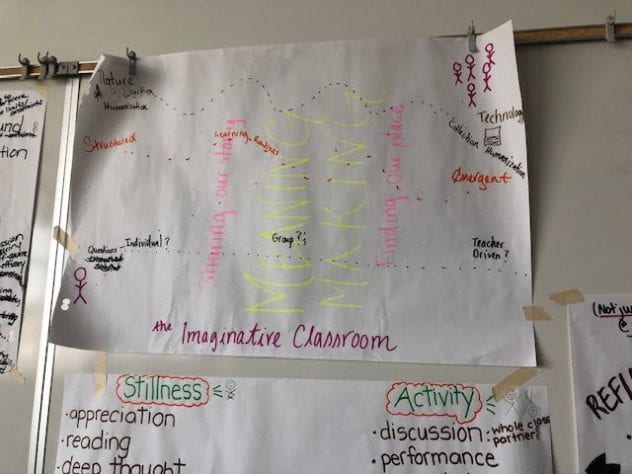 Nature
Collection
Humanization
Structured
Learning Routines
Sharing our story
MEANING
MAKING
Finding our place
Technology
Collection Humanization
Emergent
Questions
Individual?
Group?'s
Teacher
Driven?
the Imaginative Classroom
Stillness
• appreciation
• reading
• deep thought
Activity
• discussion: whole class
partner
• performance
(Not ju
REFL
tion